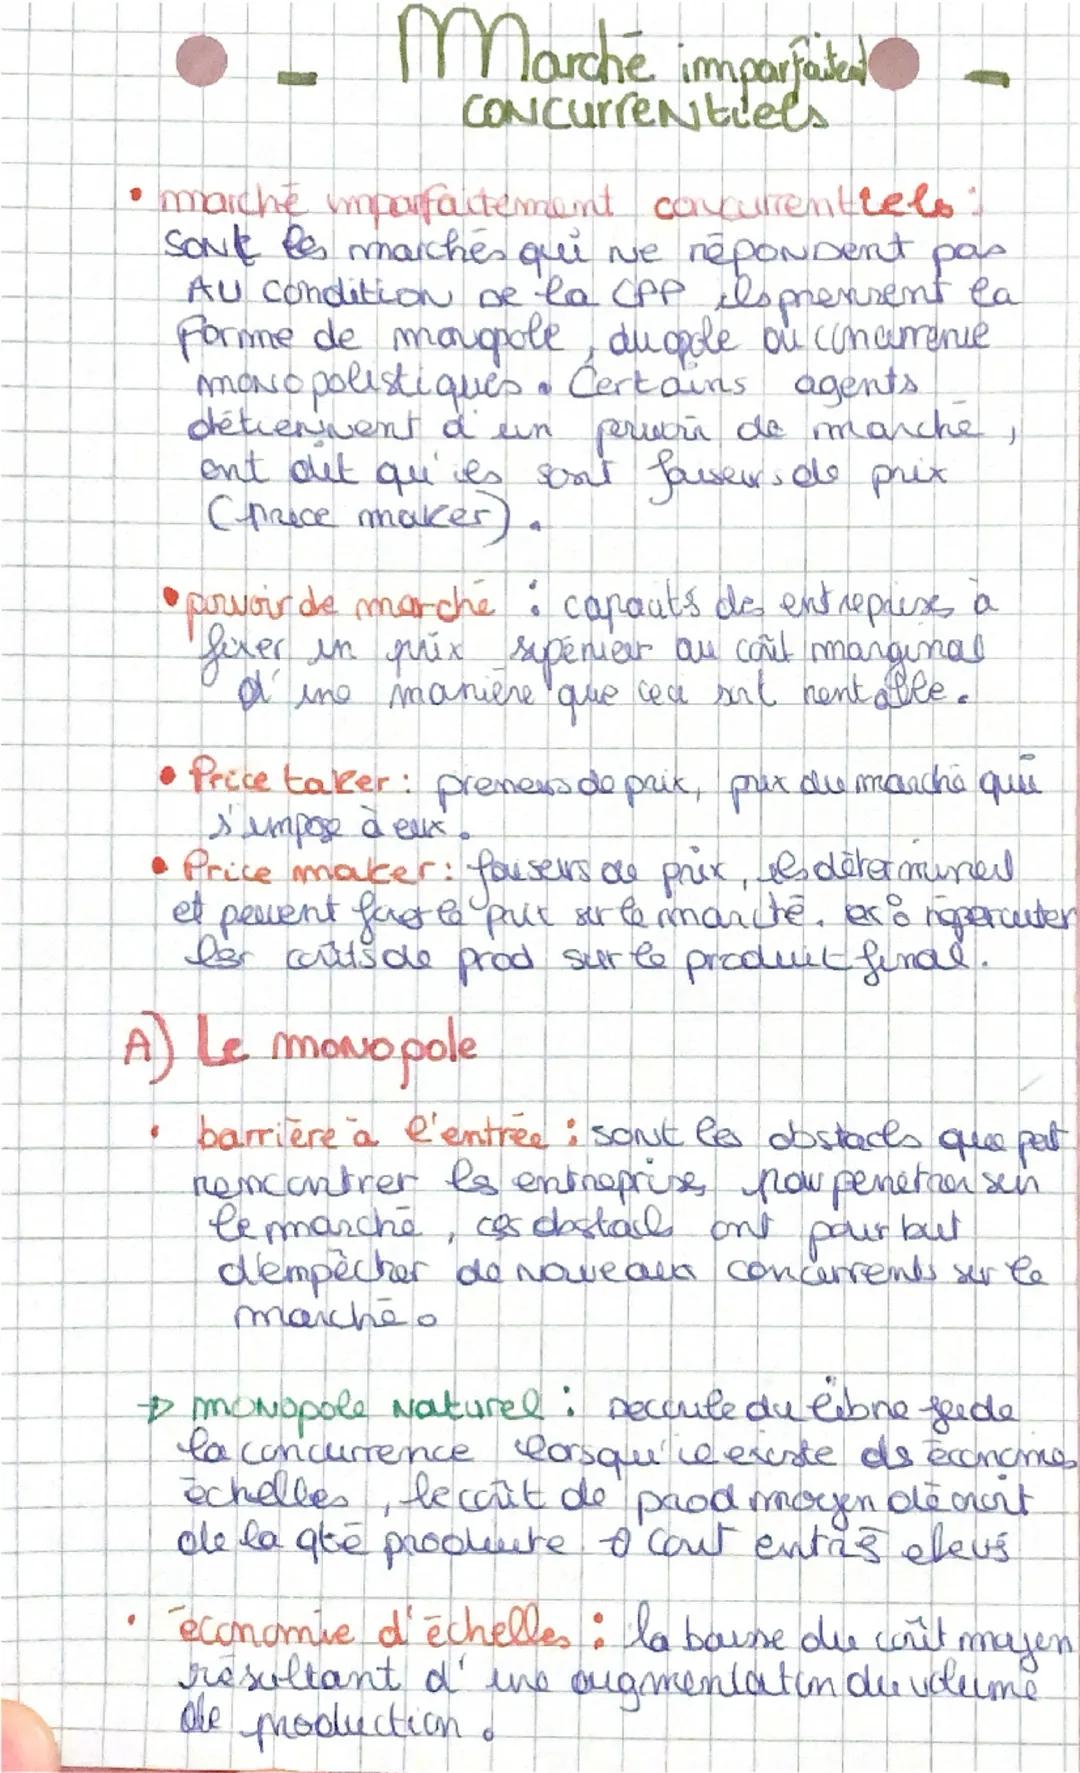 - Marché imparfaitent -
concurrentiels
• marché imparfaitement concurrentiels :
sont les marchés qui ne répondent pas
au condition de la CPP ils prennent la
forme de monopole, duopole ou concurrence
monopolistiques. Certains agents
détiennent d'un pouvoir de marché,
ont dit qu'ils sont faiseurs de prix
(price maker).
• pouvoir de marché : capacités des entreprises à
fixer un prix supérieur au coût marginal
d'une manière que ceci soit rentable.
• Price taker : preneurs de prix, prix du marché qui
s'impose à eux.
• Price maker : faiseurs de prix, ils déterminent
et peuvent fixer le prix sur le marché. ex : répercuter
les coûts de prod sur le produit final.
A) Le monopole
• barrière à l'entrée : sont les obstacles que peut
rencontrer les entreprises pour penetrer sur
le marché, ces obstacles ont pour but
d'empêcher de nouveaux concurrents sur le
marché.
→ monopole naturel : découle du libre jeu de
la concurrence lorsqu'il existe ds économies
échelles, le coût de prod moyen décroit
de la qté produite → cout entrée élevé
• économie d'échelles : la baisse du coût moyen
résultant d'une augmentation du volume
de production.